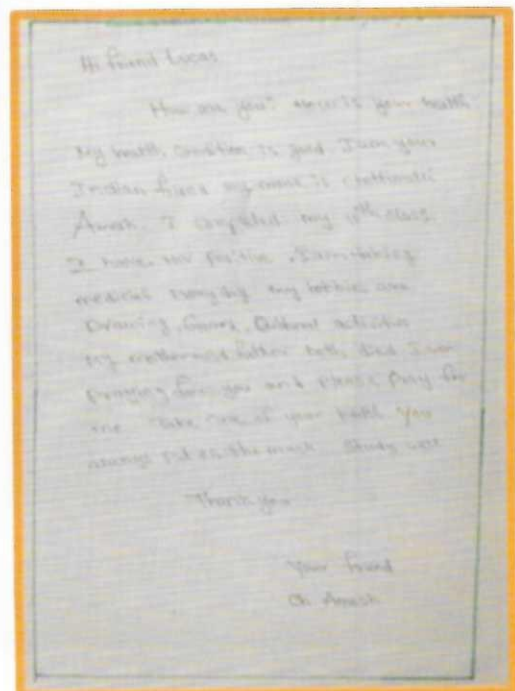 Hi found Lucas
How are you? is your health
my health condition is good. I am your
Indian friend my name is
Amosh. I completed my 10th class.
I have HIV positive. I am taking
medicines my hobbies are
Drawing, Games, Cultural activities
my mother and father both died I am
praying for you and please pray for
me. Take care of your health. You
always the mask Study well
Thank you
Your found
Ch. Amosh